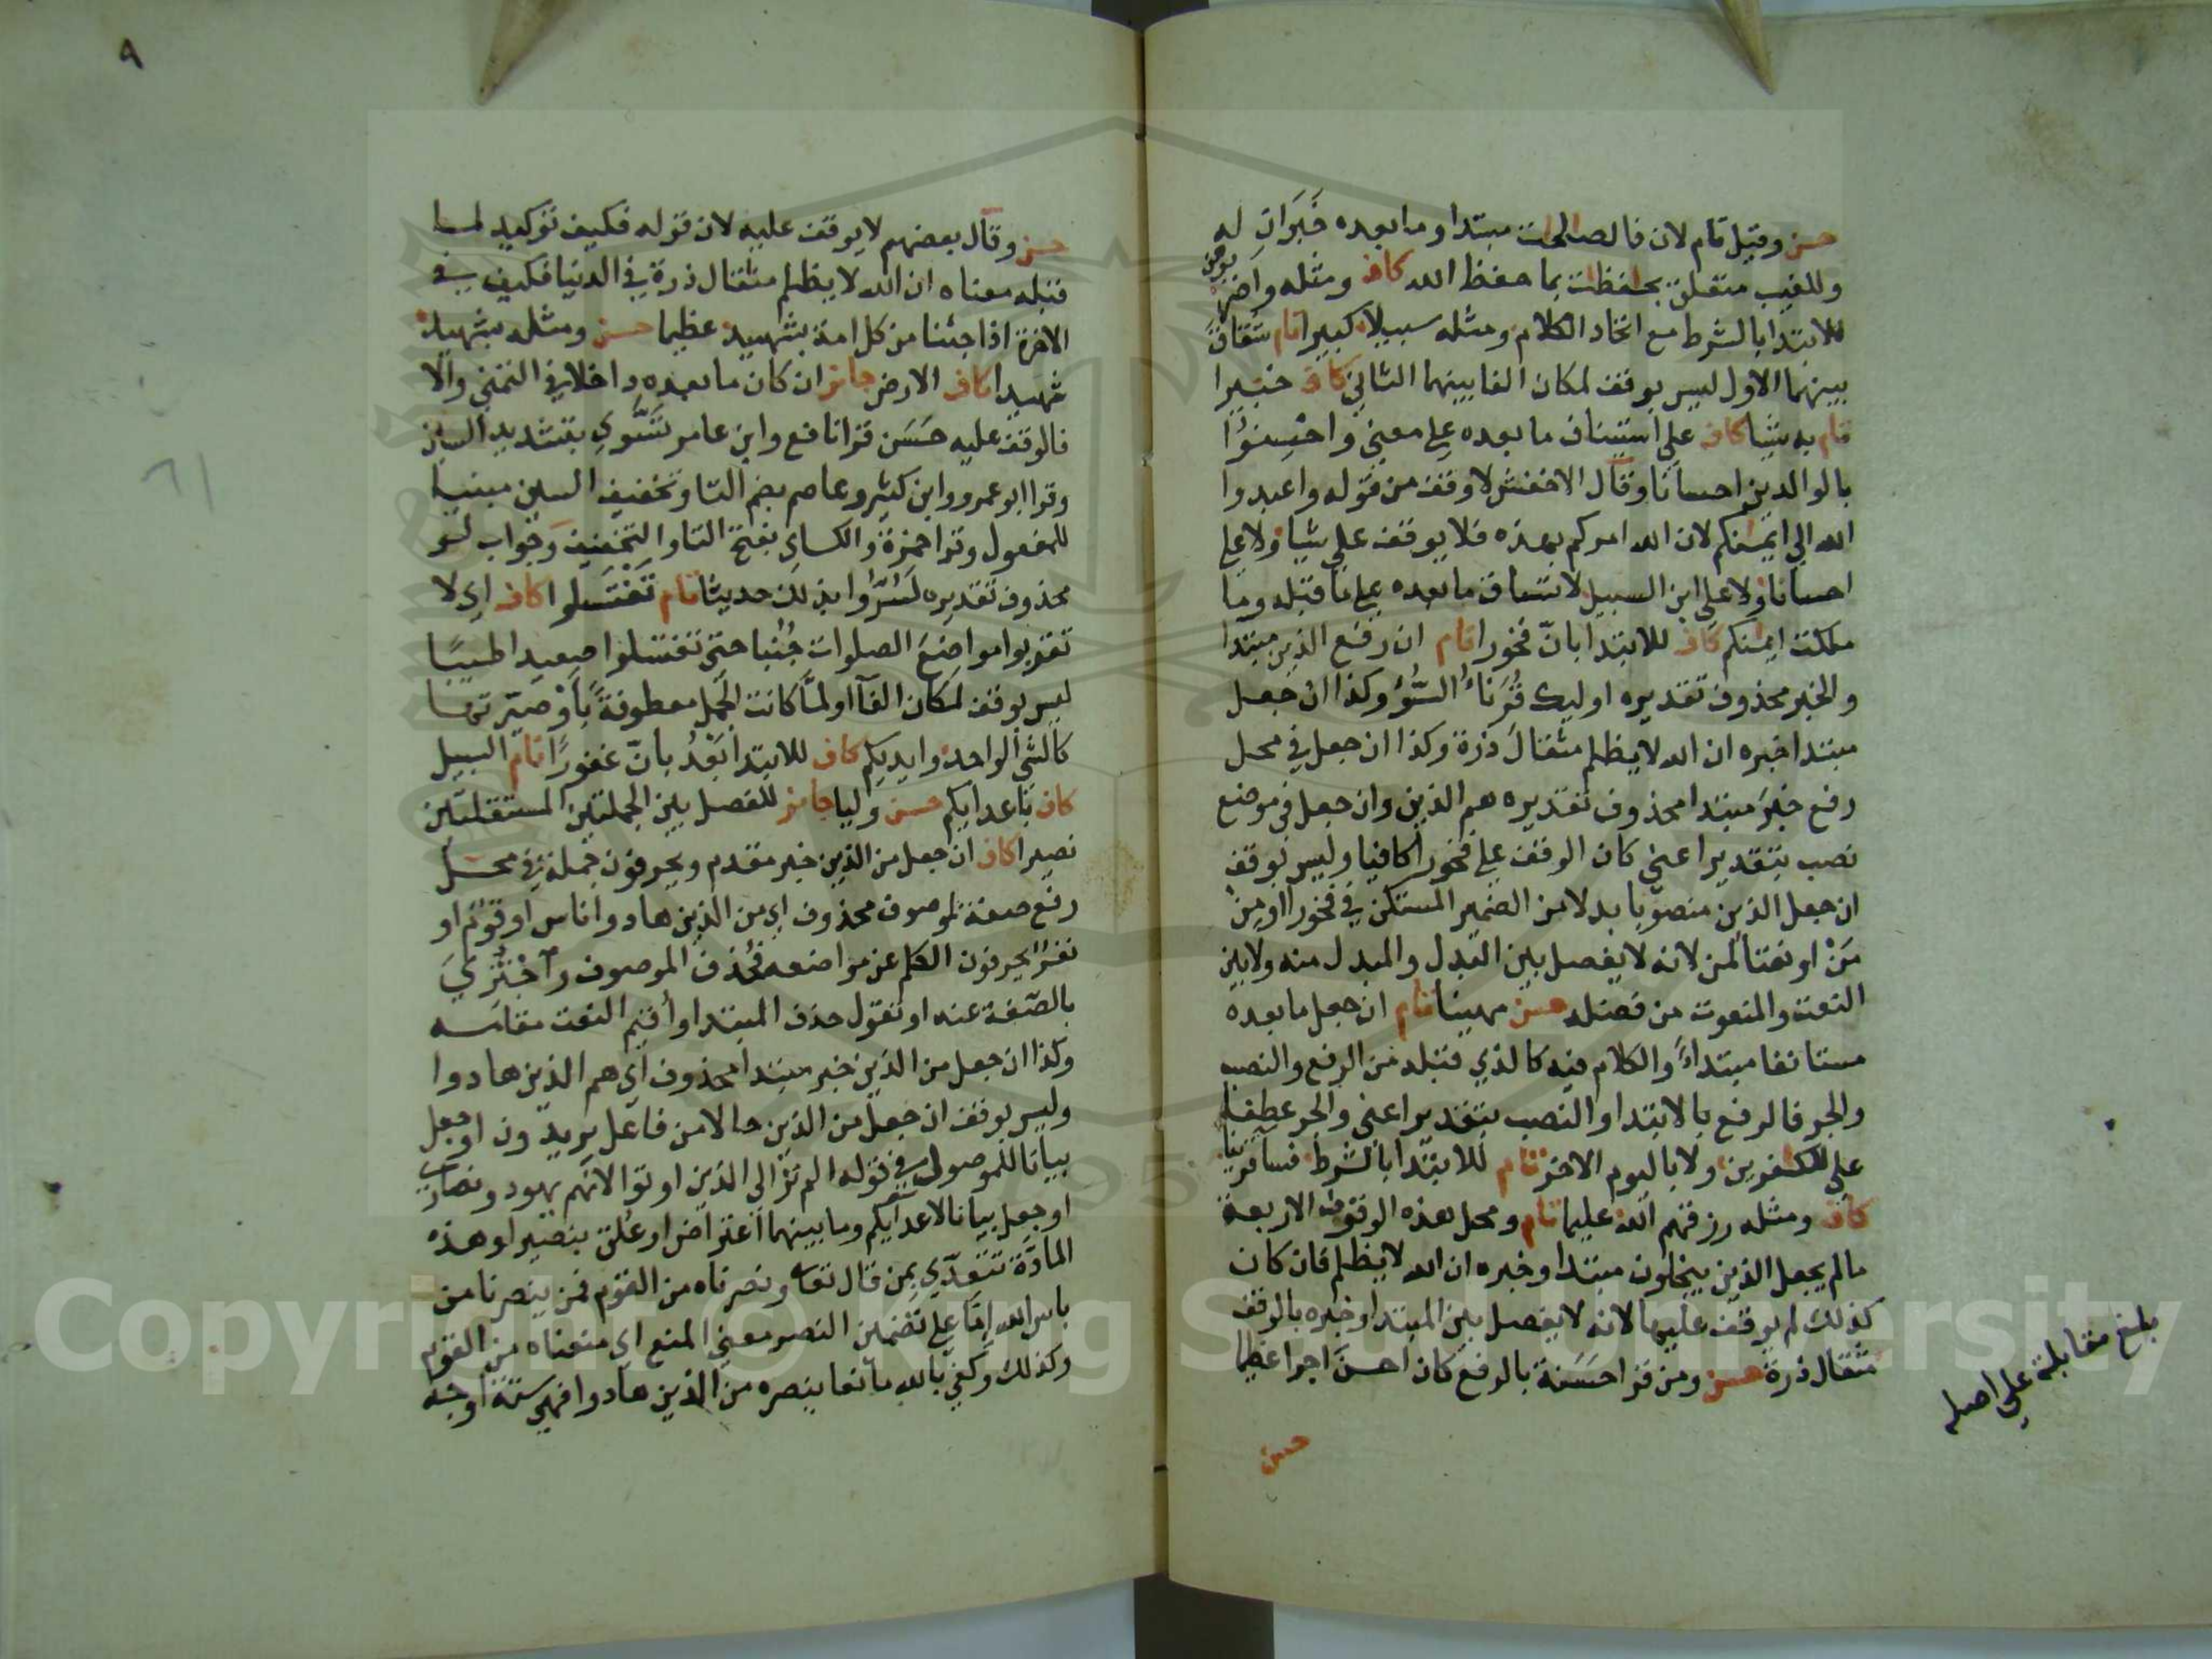 حسن وقيل تام لان فالصالحات مبتدا وما بعده خَبَرَانِ له
وللغيب متعلق بحافظات بما حفظ الله كاف ومثله واضربوهن
للابتدا بالشرط مع اتحاد الكلام ومثله سبيلا كبيرا تام شقاق
بينهما الاول ليس بوقف لمكان الفا بينهما الثاني كاف خبيرا
تام به شيا كاف على استيناف ما بعده على معنى واحسِنوُا
بالوالدين احسانا وقال الاخفش لا وقف من قوله واعبدوا
الله الى ايمنكم لان الله امركم بهذه فلا يوقف على شيا ولا على
احسانا ولا على ابن السبيل لاتساق ما بعده على ما قبله وما
ملكت ايمنكم كاف للابتدا بانّ فخورا تام ان رفع الذين مبتدا
والخبر محذوف تقديره اوليك قُرَنَاءُ السُّوُء وكذا ان جعل
مبتدا خبره ان الله لا يظلم مثقال ذرة وكذا ان جعل في محل
رفع خبرَ مبتدا محذوف تقديره هم الذين وان جعل في موضع
نصب بتقدير اعنى كان الوقف على فخورا كافيا وليس بوقف
ان جعل الذين منصوبا بدلا من الضمير المستكن في فخورا او من
مَنْ او نعتا لمن لانه لا يفصل بين البدل والمبدل منه ولا بين
النعت والمنعوت من فضله حسن مهينا تام ان جعل ما بعده
مستانفا مبتداءً والكلام فيه كالذي قبله من الرفع والنصب
والجر فالرفع بالابتدا والنصب بتقدير اعنى والجر عطفا
على للكفرين ولا باليوم الاخر تام للابتدا بالشرط فسا قرينا
كاف ومثله رزقهم الله عليما تام ومحل هذه الوقوف الاربعة
ما لم يجعل الذين يبخلون مبتدا وخبره ان الله لا يظلم فان كان
كذلك لم يوقف عليها لانه لا يفصل بين المبتدا وخبره بالوقف
مثقال ذرة حسن ومن قرا حَسَنة بالرفع كان احسن اجرا عظيما
حسن
بلغ مقابلة على اصله
٩
حسن وقال بعضهم لا يوقف عليه لان قوله فكيف توكيد لما
قبله معناه ان الله لا يظلم مثقال ذرة في الدنيا فكيف في
الاخرة اذا جئنا من كل امة بشهيد عظيما حسن ومثله بشهيد
شهيدا كاف الارض جائز ان كان ما بعده داخلا في التمني والا
فالوقف عليه حَسَن قرا نافع وابن عامر تَسَّوي بتشديد السين
وقرا ابو عمرو وابن كثير وعاصم بضم التا وتخفيف السين مبنيا
للمفعول وقرا حمزة والكساي بفتح التا والتخفيف وجواب لو
محذوف تقديره لَسُرّوا بذلك حديثا تام تَغْتَسلوا كاف اي لا
تقربوا مواضِعَ الصلوات جُنُبا حتى تغتسلوا صعيدا طيبًا
ليس بوقف لمكان الفآ اولمّا كانت الجُمل معطوفةً بأوْ صيّرتها
كالشي الواحد وايديكم كاف للابتدا بَعْدُ بانّ غفورًا تام السبيل
كاف باعدايكم حسن وليا جائز للفصل بين الجملتين المستقلتين
نصيرا كاف ان جعل من الذين خبر مقدم ويحرفون جملة في محل
رفع صفة لموصوف محذوف اي من الذين هادوا اناس او قوم او
نفر يحرفون الكلم عن مواضعه فحُذف الموصوف واجْتُزِيَ
بالصّفة عنه او تقول حذف المبتدا وأقيم النعت مقامه
وكذا ان جعل من الذين خبر مبتدا محذوف اي هم الذين هادوا
وليس بوقف ان جعل من الذين حالا من فاعل يريدون او جعل
بيانا للموصول في قوله الم تر الى الذين اوتوا لانهم يهود ونصارى
او جعل بيانا لاعدايكم وما بينهما اعتراض او علق بنصيرا وهذه
المادّة تتعدّي بمن قال تعالى ونصرناه من القوم فمن ينصرنا من
باس الله إمّا على تضمين النصر معنى المنع اي منعناه من القوم
وكذلك وكفي بالله مانعا ينصره من الذين هادوا فهي ستة اوجه